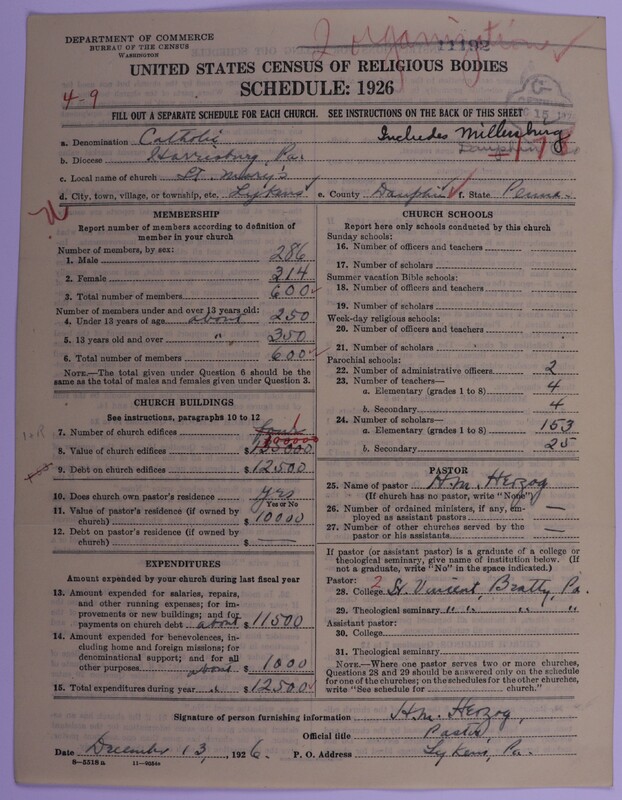 DEPARTMENT OF COMMERCE
BUREAU OF THE CENSUS
WASHINGTON
2 organizations ✓
11192
UNITED STATES CENSUS OF RELIGIOUS BODIES
SCHEDULE: 1926
4-9
FILL OUT A SEPARATE SCHEDULE FOR EACH CHURCH. SEE INSTRUCTIONS ON THE BACK OF THIS SHEET
a. Denomination Catholic Includes Millersburg
Dauphin
b. Diocese Harrisburg, Pa.
c. Local name of church St. Mary's
d. City, town, village, or township, etc. Lykens e. County Dauphin ✓ f. State Penna.
MEMBERSHIP
Report number of members according to definition of member in your church
Number of members, by sex:
1. Male 286
2. Female 314
3. Total number of members 600 ✓
Number of members under and over 13 years old:
4. Under 13 years of age about 250
5. 13 years old and over " 350
6. Total number of members 600 ✓
NOTE.—The total given under Question 6 should be
same as the total of males and females given under Question 3.
CHURCH BUILDINGS
See instructions, paragraphs 10 to 12
7. Number of church edifices four 1
8. Value of church edifices $
9. Debt on church edifices $12500
10. Does church own pastor's residence yes
Yes or No
11. Value of pastor's residence (if owned by
church) $10000
12. Debt on pastor's residence (if owned by
church) $ —
EXPENDITURES
Amount expended by your church during last fiscal year
13. Amount expended for salaries, repairs,
and other running expenses; for im-
provements or new buildings; and for
payments on church debt about $11500
14. Amount expended for benevolences,
including home and foreign missions; for
denominational support; and for all
other purposes about $1000
15. Total expenditures during year $12500 ✓
CHURCH SCHOOLS
Report here only schools conducted by this church
Sunday schools:
16. Number of officers and teachers
17. Number of scholars
Summer vacation Bible schools:
18. Number of officers and teachers
19. Number of scholars
Week-day religious schools:
20. Number of officers and teachers
21. Number of scholars
Parochial schools:
22. Number of administrative officers 2
23. Number of teachers—
a. Elementary (grades 1 to 8) 4
b. Secondary 4
24. Number of scholars—
a. Elementary (grades 1 to 8) 153
b. Secondary 25
PASTOR
25. Name of pastor H.M. Herzog
(If church has no pastor, write "None")
26. Number of ordained ministers, if any, em-
ployed as assistant pastors —
27. Number of other churches served by the
pastor or his assistants —
If pastor (or assistant pastor) is a graduate of a college or
theological seminary, give name of institution below. (If
not a graduate, write "No" in the space indicated.)
Pastor:
28. College 2 St. Vincent Beatty, Pa.
29. Theological seminary " " " "
Assistant pastor:
30. College
31. Theological seminary
NOTE.—Where one pastor serves two or more churches,
Questions 28 and 29 should be answered only on the schedule
for one of the churches; on the schedules for the other churches,
write "See schedule for church."
Signature of person furnishing information H.M. Herzog,
Official title Pastor
Date December 13, 1926. P. O. Address Lykens, Pa.
8—5518 a 11—9054a